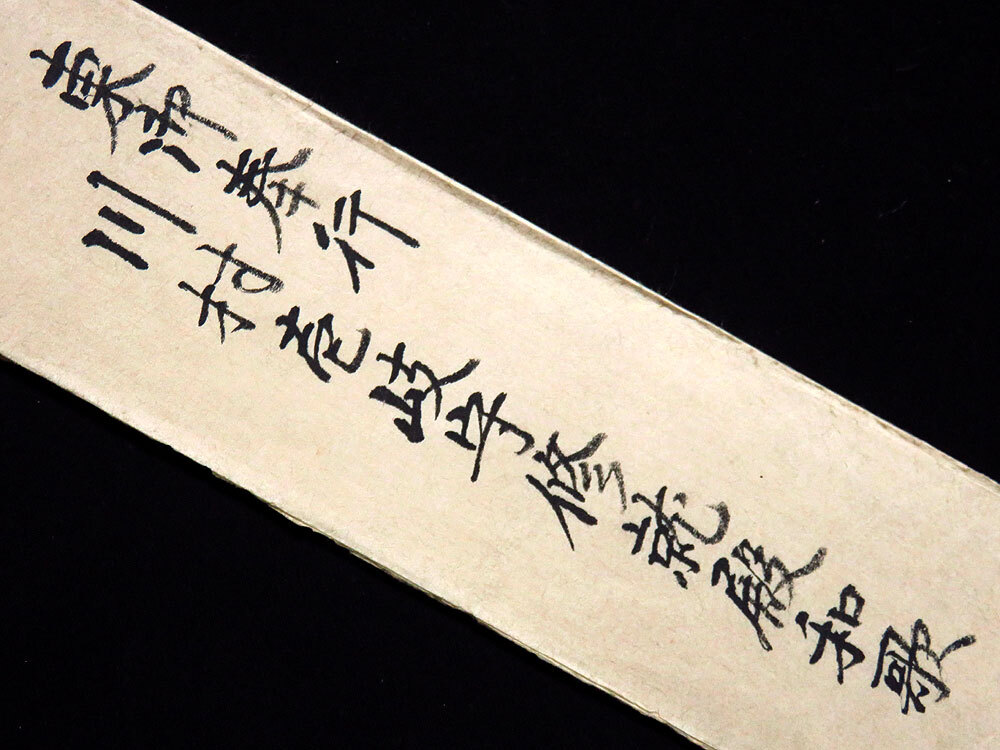 東御奉行
川村壱岐守修就殿和歌